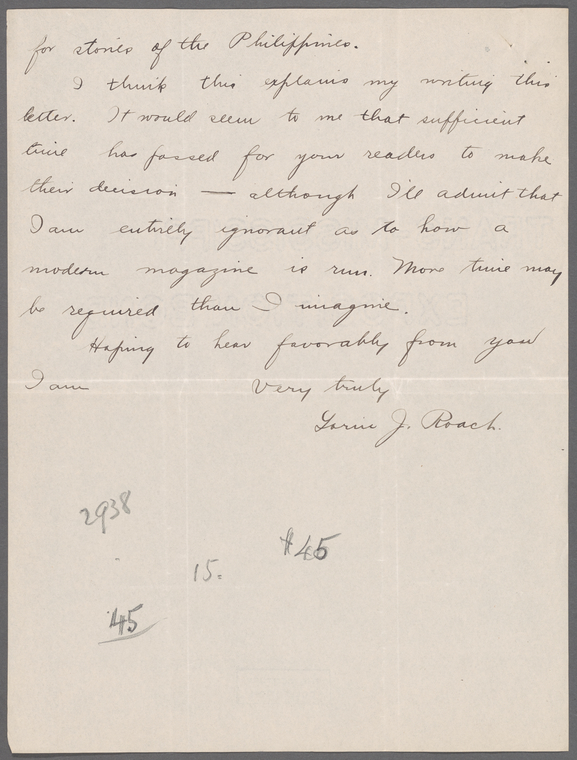 for stories of the Philippines.
I think this explains my writing this
letter. It would seem to me that sufficient
time has passed for your readers to make
their decision — although I'll admit that
I am entirely ignorant as to how a
modern magazine is run. More time may
be required than I imagine.
Hoping to hear favorably from you
I am Very truly
Lorin J. Roach.
2938
$45
15.
45